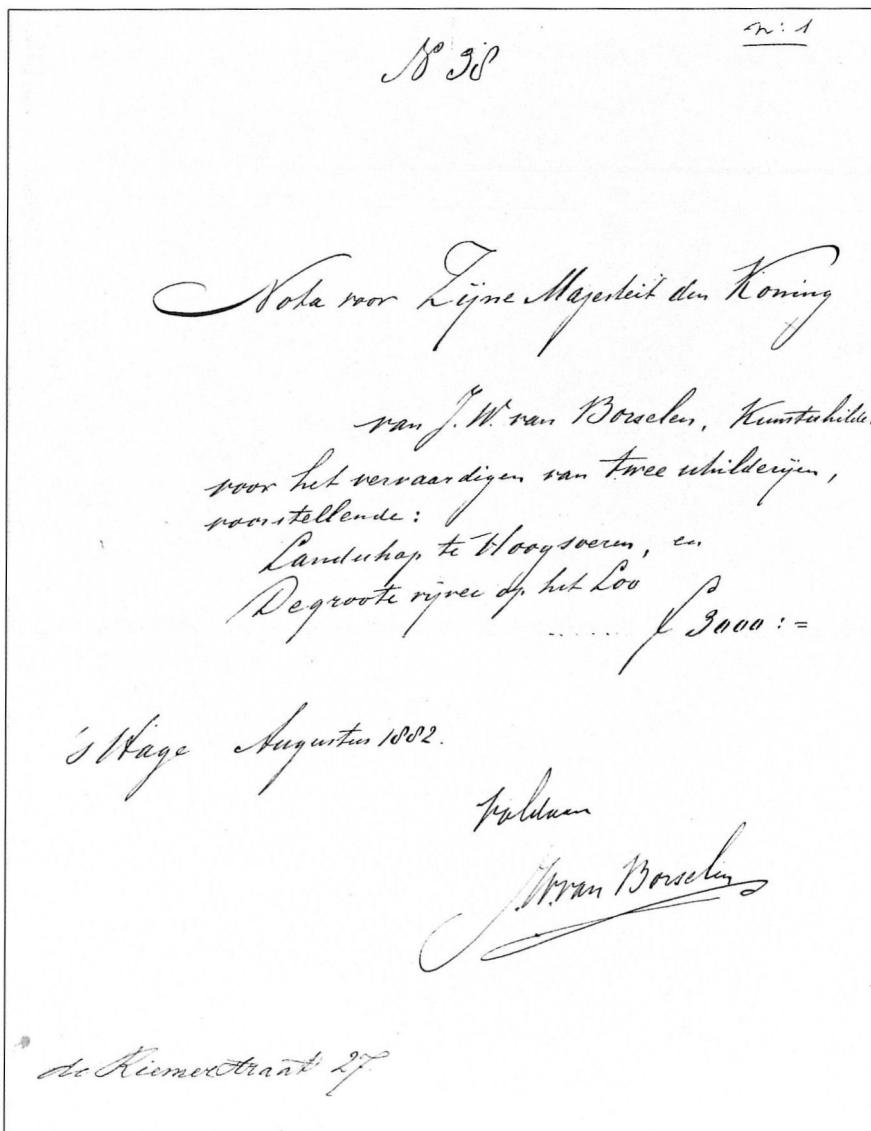 n: 1
No 38
Nota voor Zijne Majesteit den Koning
van J. W. van Borselen, Kunstschilder
voor het vervaardigen van twee schilderijen,
voorstellende:
Landschap te Hoogsoeren, en
De groote vijver op het Loo
...... f 3000 : =
's Hage Augustus 1882.
Voldaan
J. W. van Borselen
de Riemerstraat 27.